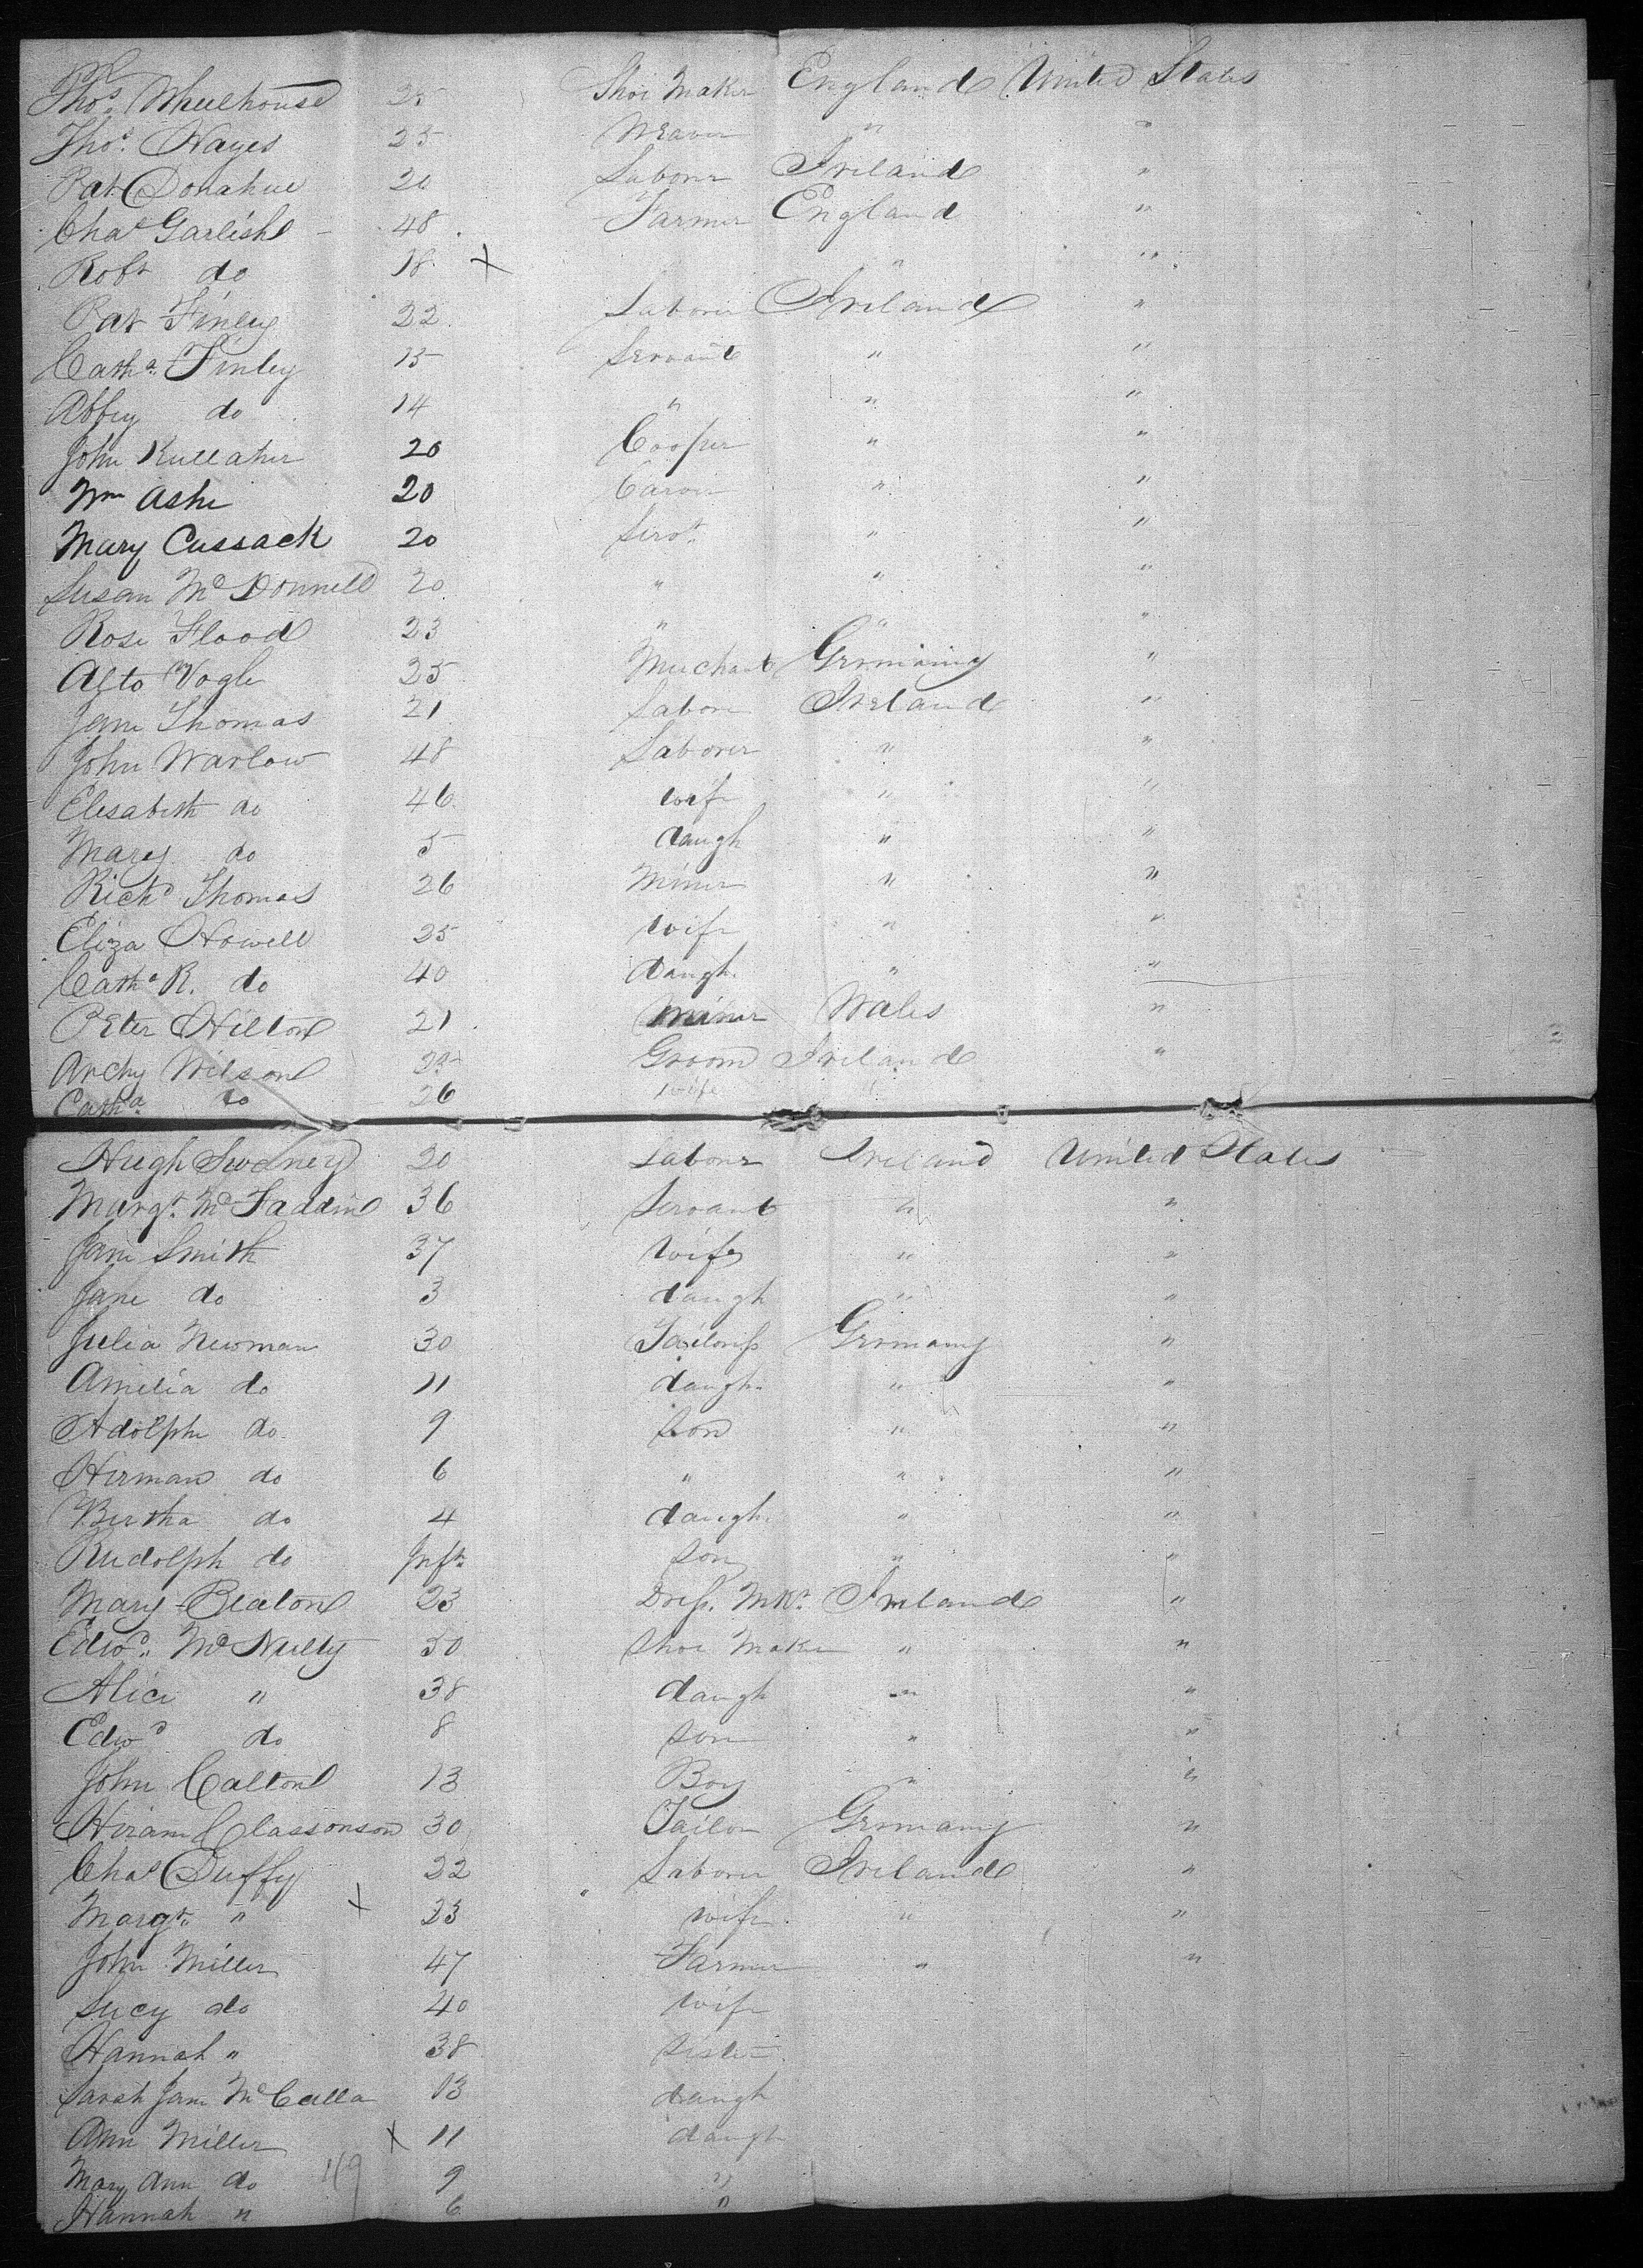 Thos. Wheelhouse 25 Shoe Maker England United States
Thos. Hayes 25 Weaver " "
Pat Donahue 20 Laborer Ireland "
Chas Garlish 48 Farmer England "
Robt do 18 X " "
Pat Finley 22 Laborer Ireland "
Catha. Finley 15 Servant " "
Abbey do 14 " " "
John Kullaher 20 Cooper " "
Wm Ashe 20 Carver " "
Mary Cussack 20 Servt. " "
Susan McDonnell 20 " " "
Rose Flood 23 " " "
Alto Vogle 25 Merchant Germany "
Jane Thomas 21 Labore Ireland "
John Warlow 48 Laborer " "
Elesabeth do 46 wife " "
Mary do 5 daugh " "
Richd Thomas 26 Miner " "
Eliza Howell 25 wife " "
Catha R. do 40 daugh " "
Peter Hilton 21 Miner Wales "
Archy Wilson Groom Ireland "
Catha. do 26 wife
Hugh Sweney 20 Laborer Ireland United States
Margt. McFaddin 36 Servant " "
Jane Smith 37 Wife " "
Jane do 3 daugh " "
Julia Newman 30 Tailoress Germany "
Amelia do 11 daugh. " "
Adolphe do 9 Son " "
Herman do 6 " " "
Bertha do 4 daugh. " "
Rudolph do Inft. Son " "
Mary Beaton 23 Dress. Mkr. Ireland "
Edwd. McNulty 50 Shoe Maker " "
Alice " 38 daugh " "
Edwd do 8 Son " "
John Calton 13 Boy " "
Hiram Classonson 30 Tailor Germany "
Chas Duffy 22 Laborer Ireland "
Margt. " X 23 wife " "
John Miller 47 Farmer " "
Lucy do 40 wife
Hannah " 38 Sister
Sarah Jane McCulla 13 daugh
Ann Miller X 11 daugh
Mary Ann do 119 9 "
Hannah " 6 "